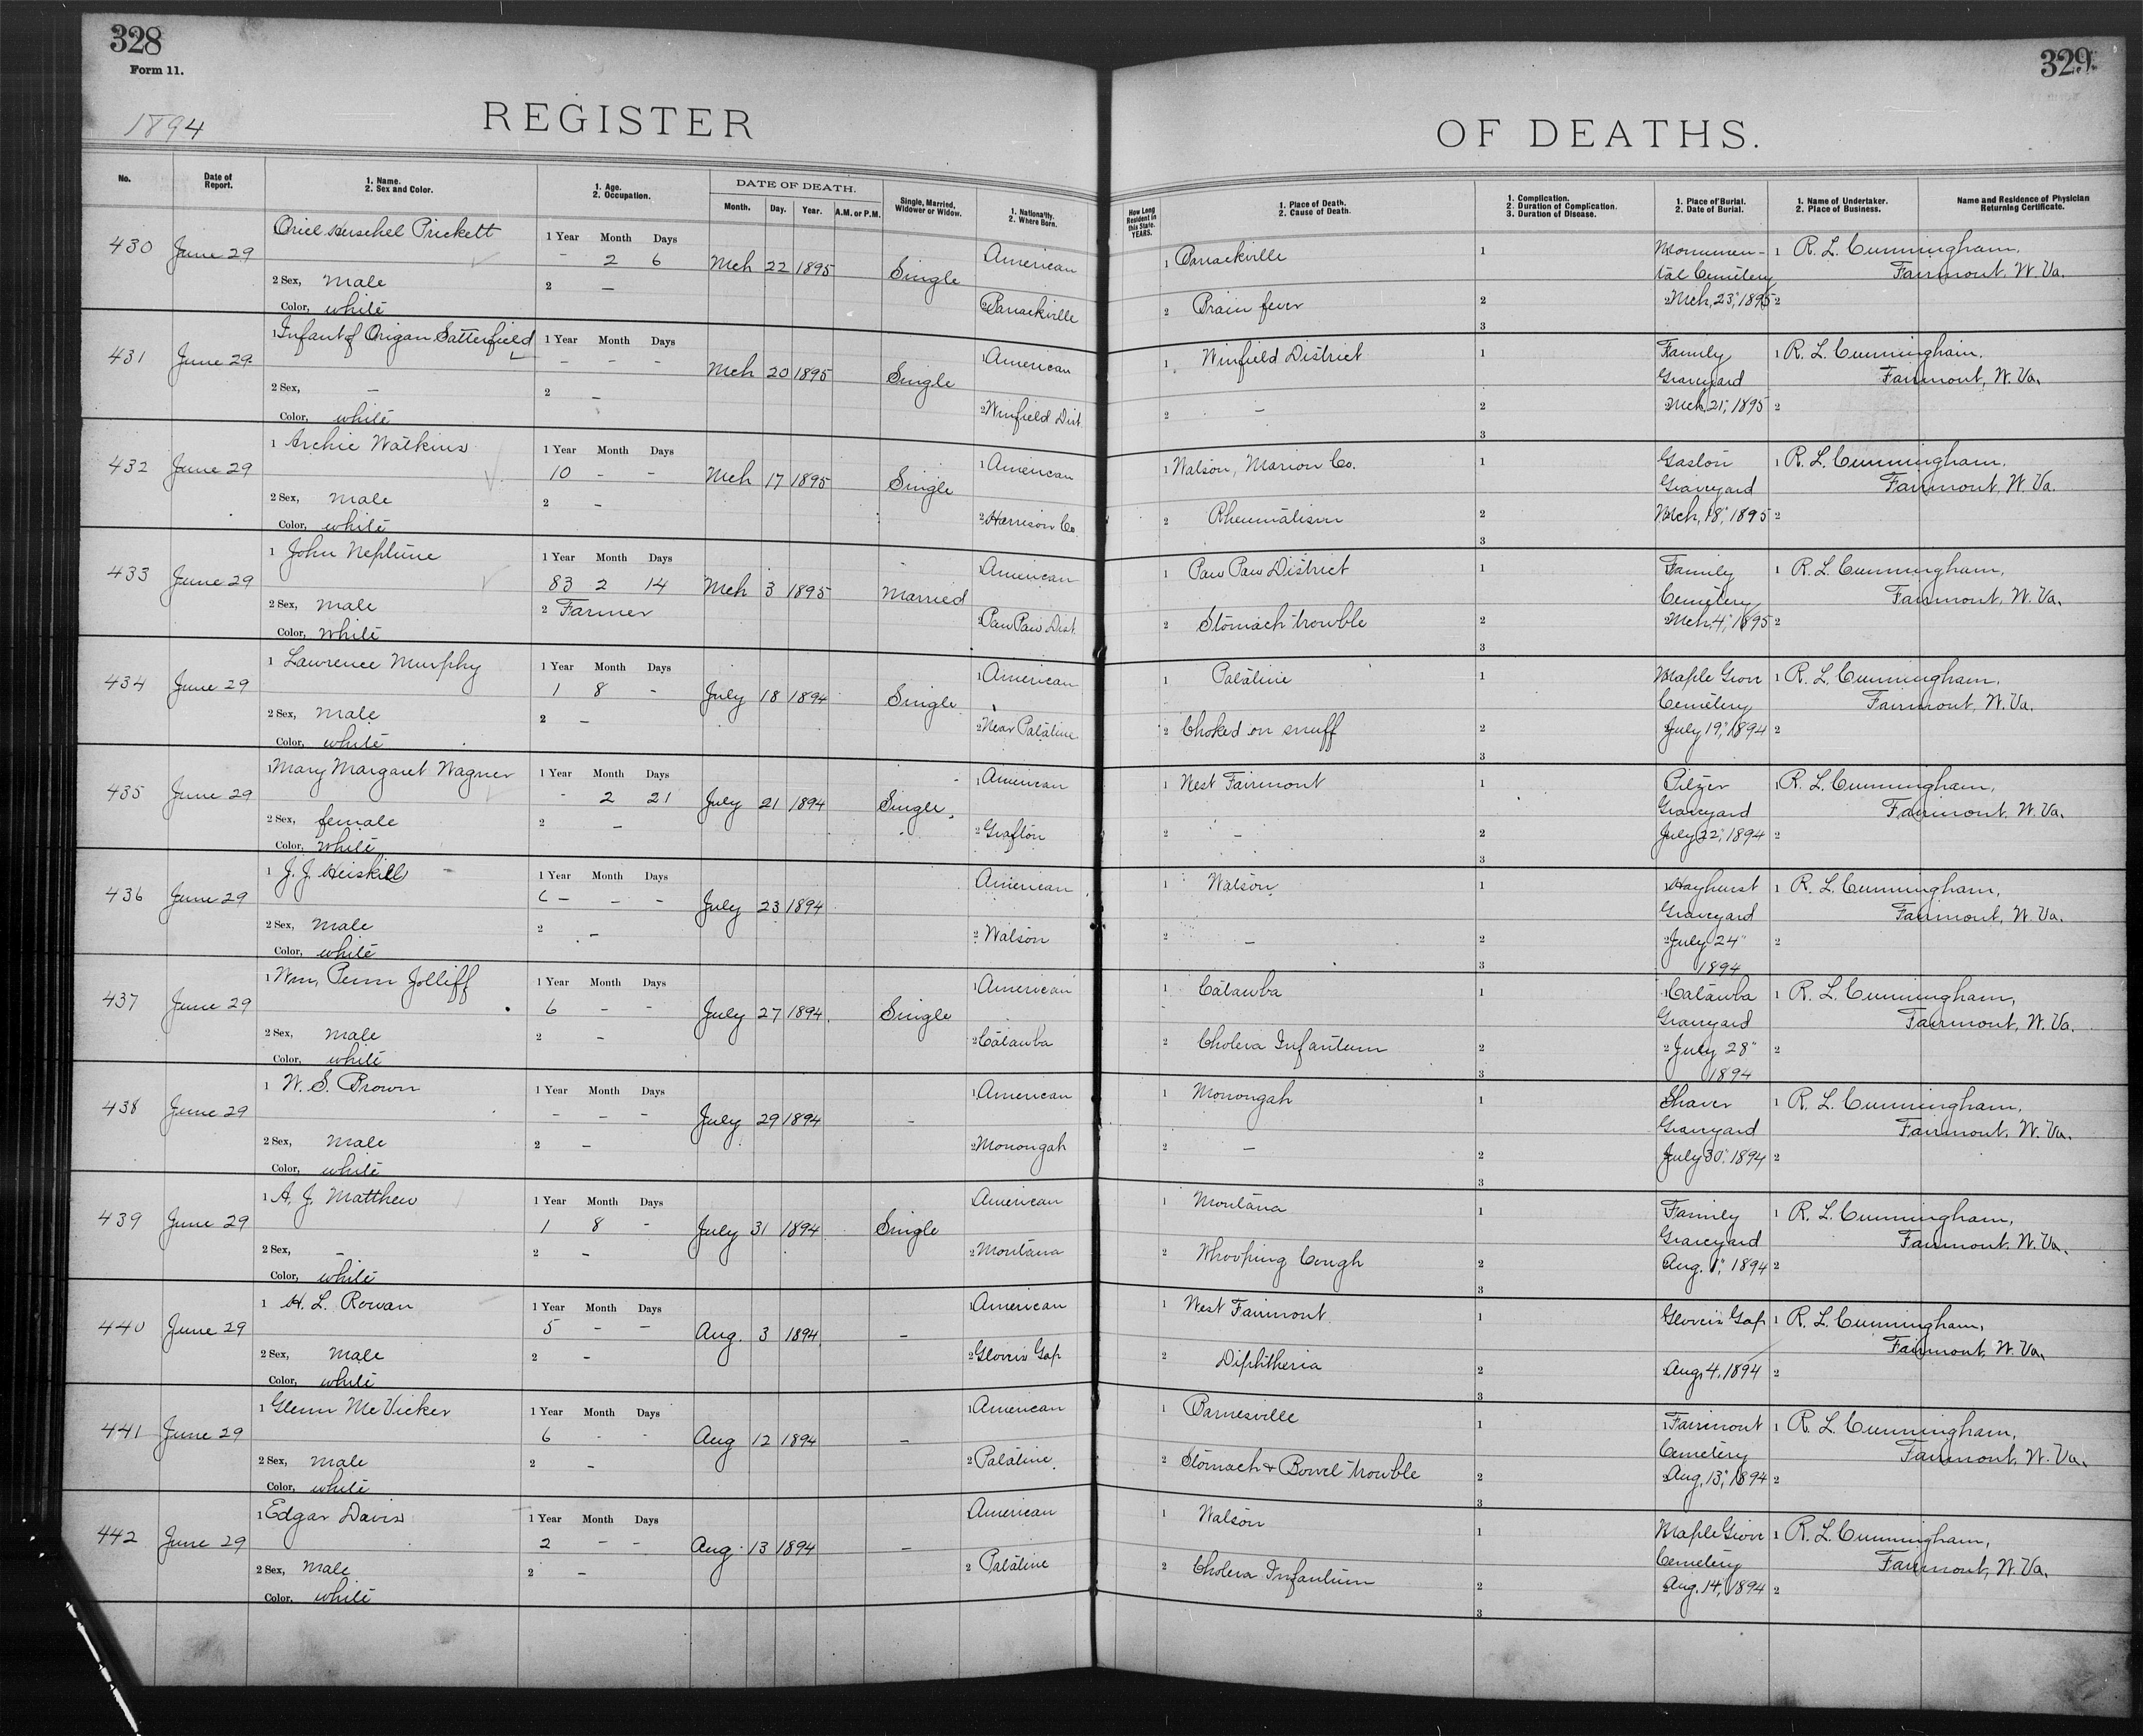 328
Form 11.
1894
REGISTER
No.
Date of Report.
1. Name.
2. Sex and Color.
1. Age.
2. Occupation.
DATE OF DEATH.
Month. Day. Year. A.M. or P.M.
Single, Married, Widower or Widow.
1. Nationality.
2. Where Born.
430 June 29 Oriel Herschel Prickett
1 Year Month Days
- 2 6 Mch 22 1895 Single American
2 Sex, Male 2 —
Color, white 2 Barrackville
431 June 29 1 Infant of Origan Satterfield
1 Year Month Days
- - - Mch 20 1895 Single 1 American
2 Sex, — 2 —
Color, white 2 Winfield Dist
432 June 29 1 Archie Watkins
1 Year Month Days
10 - - Mch 17 1895 Single 1 American
2 Sex, Male 2 —
Color, white 2 Harrison Co.
433 June 29 1 John Neptune
1 Year Month Days
83 2 14 Mch 3 1895 Married 1 American
2 Sex, Male 2 Farmer
Color, White 2 Paw Paw Dist.
434 June 29 1 Lawrence Murphy
1 Year Month Days
1 8 - July 18 1894 Single 1 American
2 Sex, Male 2 —
Color, white 2 Near Palatine
435 June 29 1 Mary Margaret Wagner
1 Year Month Days
- 2 21 July 21 1894 Single 1 American
2 Sex, female 2 —
Color, White 2 Grafton
436 June 29 1 J. J. Heiskill
1 Year Month Days
6 - - - July 23 1894 American
2 Sex, Male 2 —
Color, white 2 Watson
437 June 29 1 Wm, Penn Jolliff
1 Year Month Days
6 - - July 27 1894 Single 1 American
2 Sex, Male 2 —
Color, white 2 Catawba
438 June 29 1 W. S. Brown
1 Year Month Days
- - - July 29 1894 - 1 American
2 Sex, Male 2 —
Color, white 2 Monongah
439 June 29 1 A. J. Matthew
1 Year Month Days
1 8 - July 31 1894 Single American
2 Sex, — 2 —
Color, white 2 Montana
440 June 29 1 H. L. Rowan
1 Year Month Days
5 - - Aug. 3 1894 - 1 American
2 Sex, Male 2 —
Color, white 2 Glovers Gap
441 June 29 1 Glenn McVicker
1 Year Month Days
6 - - Aug 12 1894 - 1 American
2 Sex, Male 2 —
Color, white 2 Palatine
442 June 29 1 Edgar Davis
1 Year Month Days
2 - - Aug. 13 1894 - American
2 Sex, Male 2 —
Color, white 2 Palatine
329
OF DEATHS.
How Long Resident in this State. YEARS.
1. Place of Death.
2. Cause of Death.
1. Complication.
2. Duration of Complication.
3. Duration of Disease.
1. Place of Burial.
2. Date of Burial.
1. Name of Undertaker.
2. Place of Business.
Name and Residence of Physician Returning Certificate.
1 Barrackville 1 Monumen- 1 R. L. Cunningham,
tal Cemetery Fairmont, W. Va.
2 Brain fever 2 2 Mch, 23, 1895 2
3
1 Winfield District 1 Family 1 R. L. Cunningham.
Graveyard Fairmont, W. Va.
2 — 2 2 Mch, 21, 1895 2
3
1 Watson, Marion Co. 1 Gaston 1 R. L. Cunningham,
Graveyard Fairmont, W. Va.
2 Rheumatism 2 Mch, 18, 1895 2
3
1 Paw Paw District 1 Family 1 R. L. Cunningham,
Cemetery Fairmont, W. Va.
2 Stomach trouble 2 2 Mch, 4, 1895 2
3
1 Palatine 1 Maple Grove 1 R. L. Cunningham,
Cemetery Fairmont, W. Va.
2 Choked on snuff 2 July 19, 1894 2
3
1 West Fairmont 1 Pitzer 1 R. L. Cunningham,
Graveyard Fairmont, W. Va.
2 — 2 July 22, 1894 2
3
1 Watson 1 1 Hayhurst 1 R. L. Cunningham,
Graveyard Fairmont, W. Va.
2 — 2 2 July 24"
3 1894 2
1 Catawba 1 1 Catawba 1 R. L. Cunningham,
Graveyard Fairmont, W. Va.
2 Cholera Infantum 2 2 July 28"
3 1894 2
1 Monongah 1 Shaver 1 R. L. Cunningham,
Graveyard Fairmont, W. Va.
2 — 2 July 30, 1894 2
3
1 Montana 1 Family 1 R. L. Cunningham,
Graveyard Fairmont, W. Va.
2 Whooping Cough 2 Aug. 1", 1894 2
3
1 West Fairmont 1 Glovers Gap 1 R. L. Cunningham,
Fairmont, W. Va.
2 Diphtheria 2 Aug, 4, 1894 2
3
1 Barnesville 1 1 Fairmont 1 R. L. Cunningham,
Cemetery Fairmont, W. Va.
2 Stomach + Bowel trouble 2 2 Aug, 13, 1894 2
3
1 Watson 1 Maple Grove 1 R. L. Cunningham,
Cemetery Fairmont, W. Va.
2 Cholera Infantum 2 Aug. 14, 1894 2
3